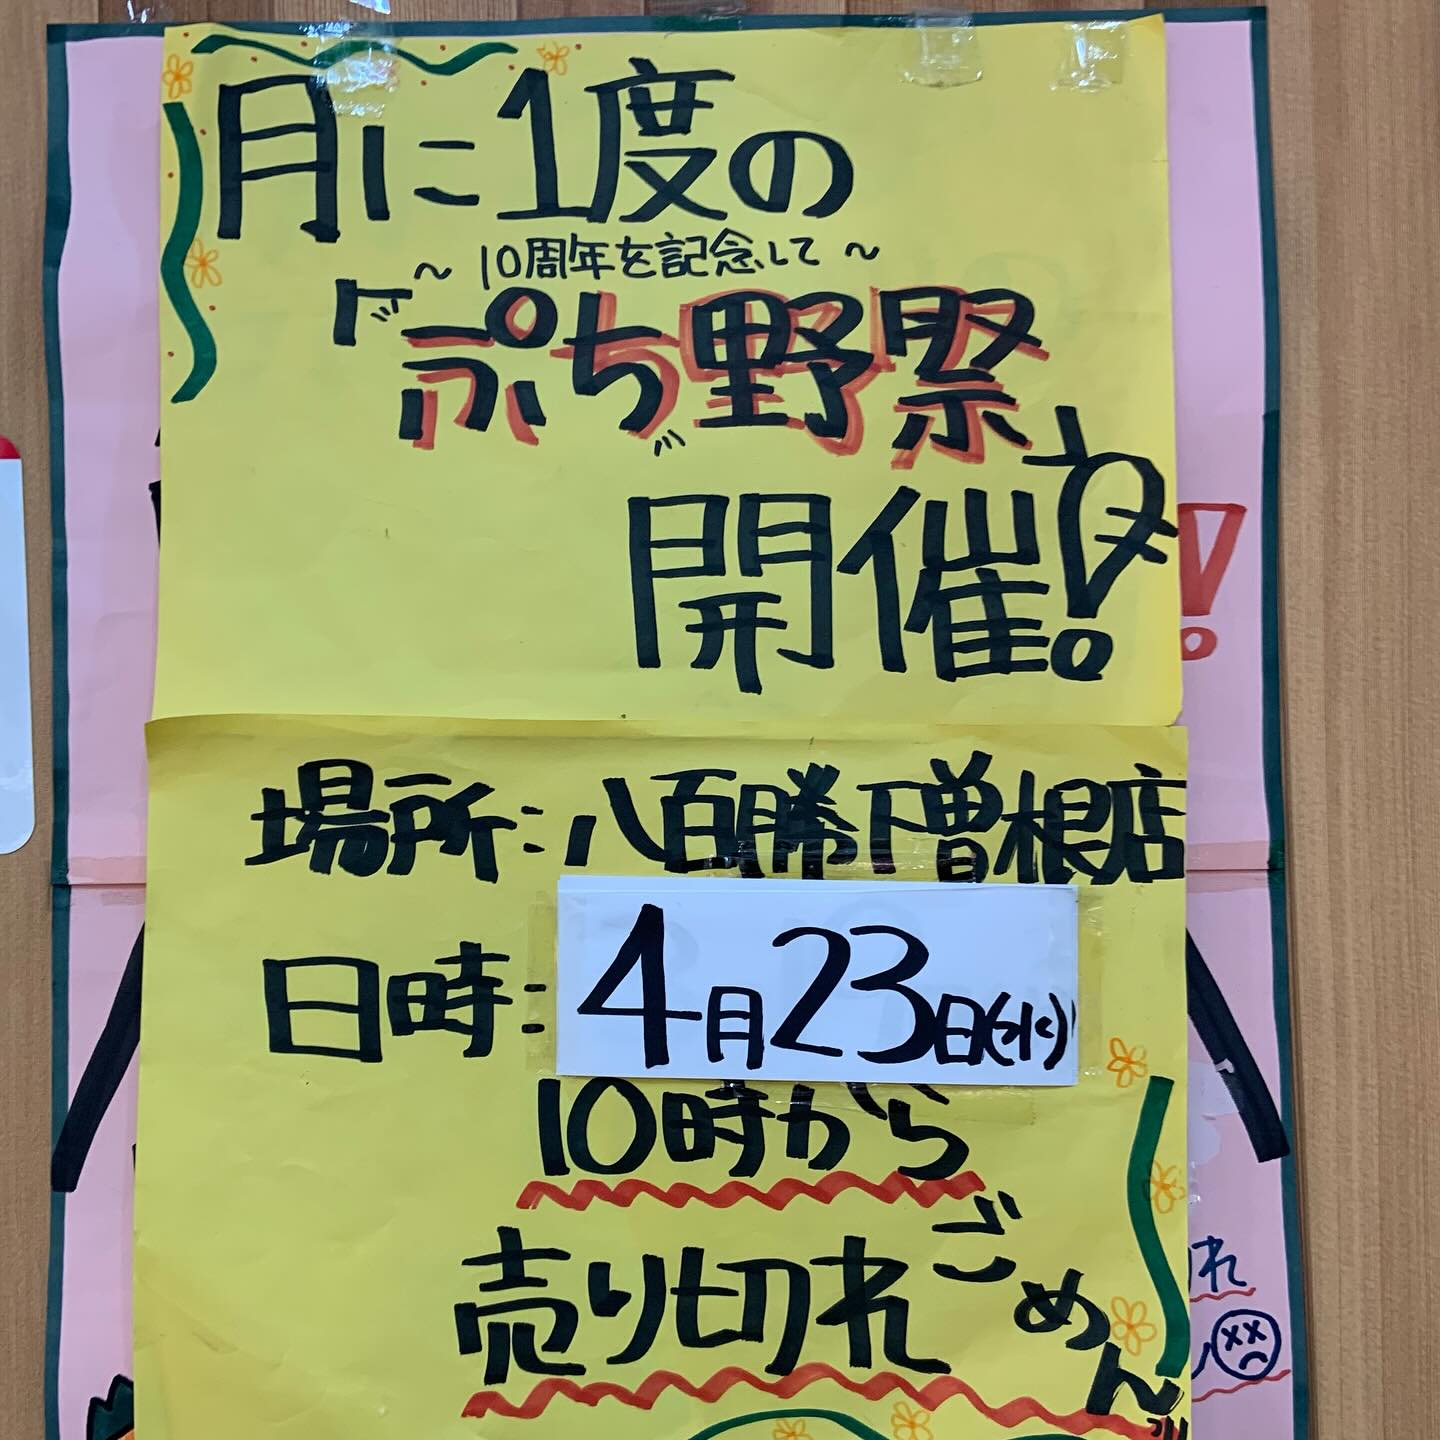 月に1度の
～10周年を記念して～
"ぷち野祭"
開催!
場所:八百勝下曽根店
日時:4月23日(水)
10時から
売り切れごめん
!
れ